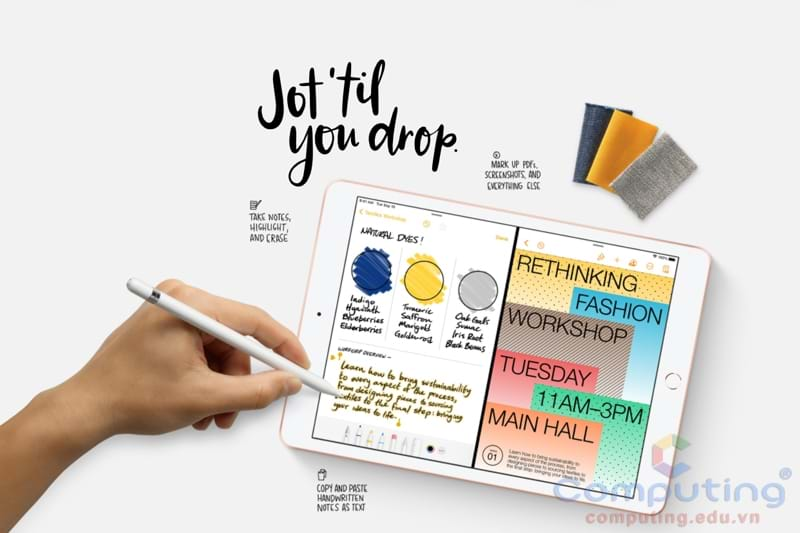 Jot 'til
you drop.
MARK UP PDFs,
SCREENSHOTS, AND
EVERYTHING ELSE
TAKE NOTES,
HIGHLIGHT,
AND ERASE
9:41 AM Tue Sep 15
Textiles Workshop
Done
NATURAL DYES!
Indigo
Hyacinth
Blueberries
Elderberries
Turmeric
Saffron
Marigold
Goldenrod
Oak Galls
Sumac
Iris Root
Black Beans
WORKSHOP OVERVIEW –
Learn how to bring sustainability
to every aspect of the process,
from designing pieces to sourcing
textiles to the final step: bringing
your ideas to life.
RETHINKING
FASHION
WORKSHOP
TUESDAY
11AM–3PM
MAIN HALL
01
Learn how to bring sustainability to
every aspect of the process, from
designing pieces to sourcing textiles to
the final step: bringing your ideas to life.
COPY AND PASTE
HANDWRITTEN
NOTES AS TEXT
Computing®
computing.edu.vn